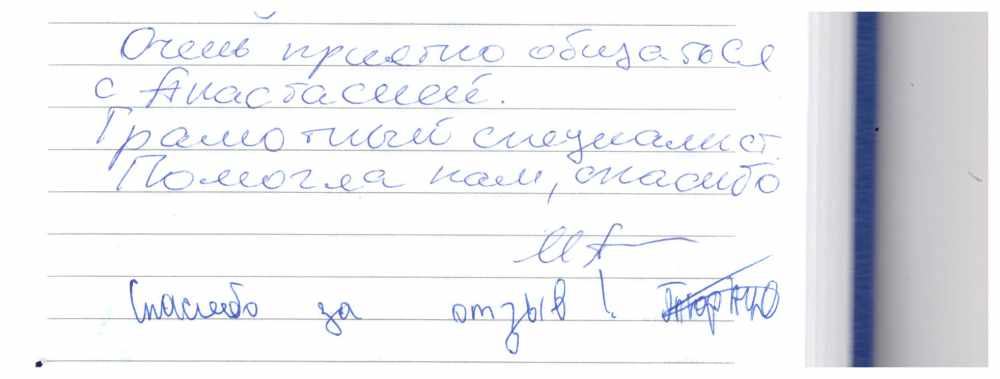 Очень приятно общаться
с Анастасией.
Грамотный специалист.
Помогла нам, спасибо
Спасибо за отзыв!